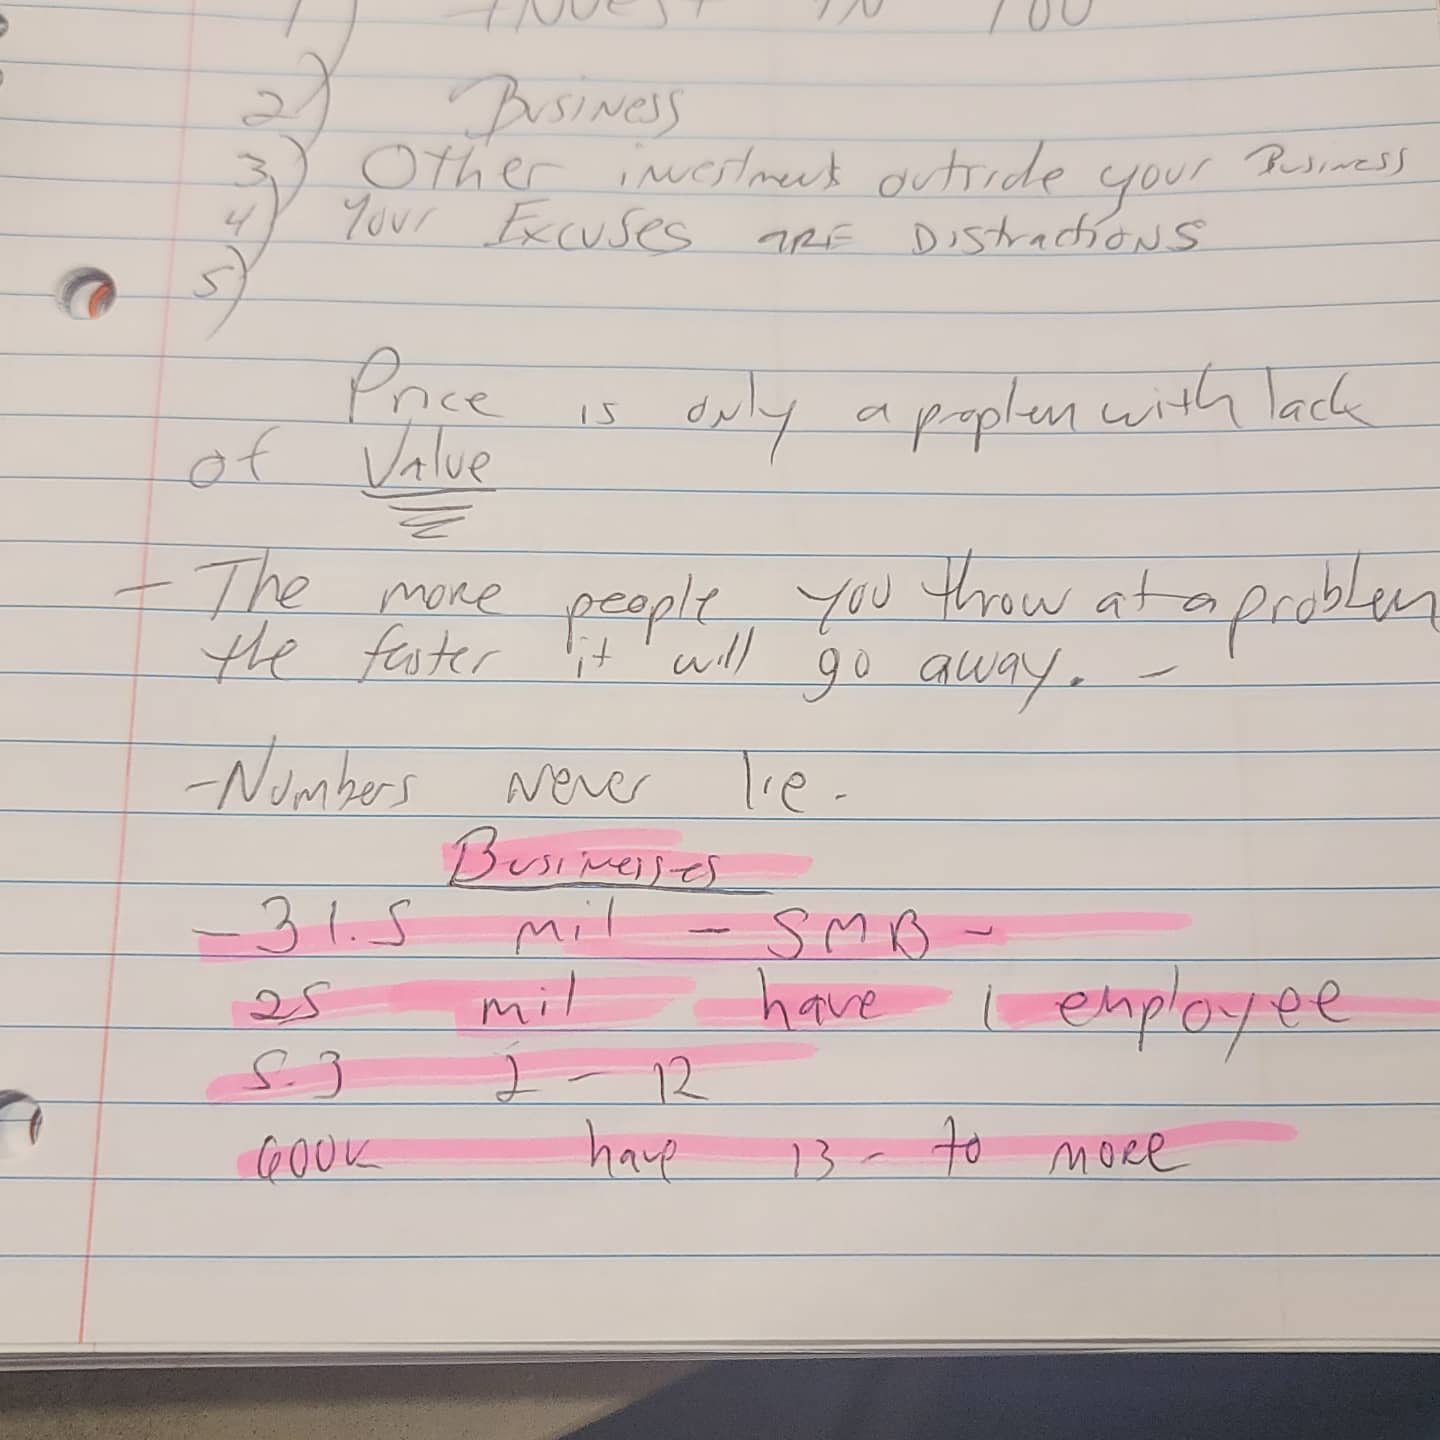 1) INVEST IN YOU
2) Business
3) Other investment outside your Business
4) Your Excuses ARE Distractions
5)
Price is only a proplem with lack
of Value
- The more people you throw at a problem
the faster it will go away. -
- Numbers never lie.
Businesses
- 31.5 mil - SMB -
25 mil have 1 employee
5.3 2 - 12
600K have 13 - to more